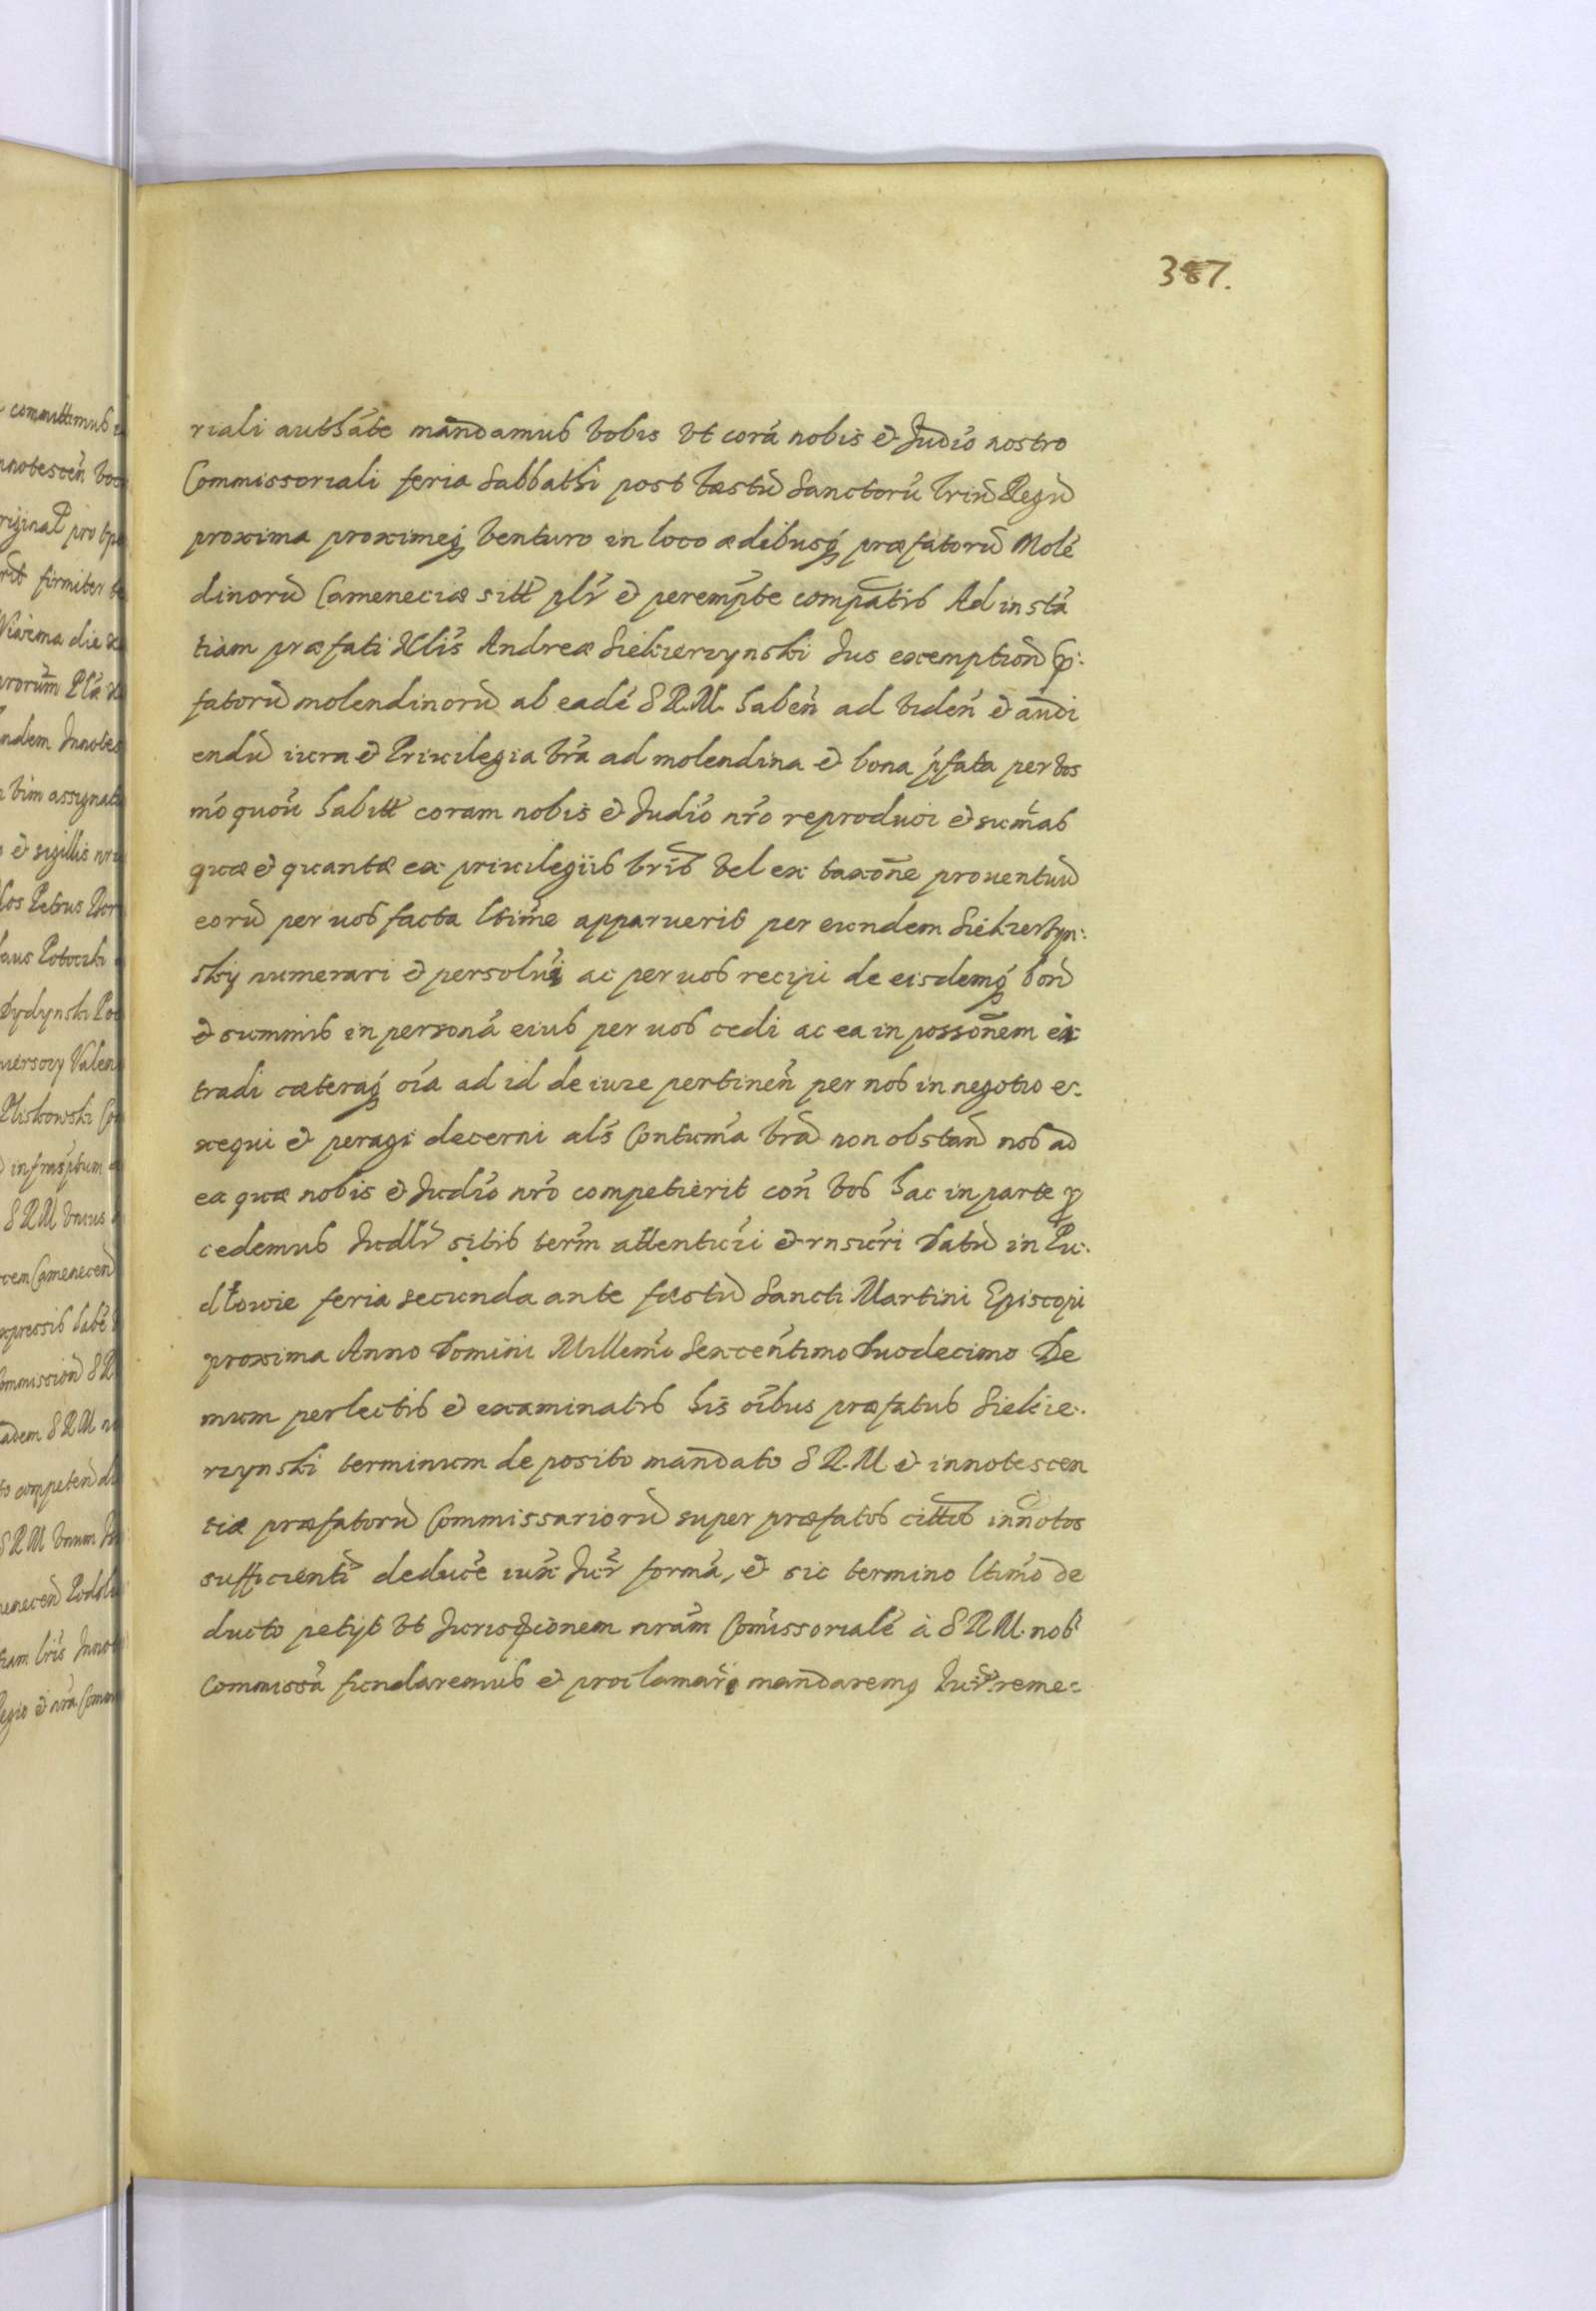 387.
riali authāte mandamus vobis vt corā nobis et Judīo nostro
Commissoriali feria Sabbathi post Festū Sanctorū Triū Regū
proxima proximeq venturo in loco ædibusq præfatorū Molē
dinorū Cameneciæ sitt plr et perempte compatis Ad instā
tiam præfati Nlis Andreæ Siekierzynski Jus exemption p:
fatorū molendinorū ab eadē S R. M. haben ad viden et audi
endū iura et Privilegia vra ad molendina et bona pfata per vos
mo quou habitt coram nobis et Judīo nro reproduci et sumas
quæ et quantæ ex privilegijs vris vel ex taxone prouentuū
eorū per uos facta ltime apparuerit per eundem Siekierzyn:
skij numerari et persolui ac per uos recipi de eisdemq bon
et summis in personā eius per uos cedi ac ea in possonem ei
tradi cæteraq oīa ad id de iure pertinen per nos in negotio e:
xequi et peragi decerni als Contuma vra non obstan nos ad
ea quæ nobis et Judīo nro competierit con vos hac in parte p
cedemus Judlr sitis term attenturi et rnsuri Datū in Pu:
dłowie feria secunda ante festū Sancti Martini Episcopi
proxima Anno Domini Millemo Sexcentimo Duodecimo De
mum perlectis et examinatis his oībus præfatus Siekie:
rzynski terminum de posito mandato S R. M et innotescen
tiæ præfatorū Commissariorū super præfatos cittos innotos
sufficienti deduce iux Jur formā, et sic termino ltimo de
ducto petijt vt Jurisdionem nram Comissorialē à S R M. nob
Commissā fundaremus et proclamari mandaremq Jur reme: